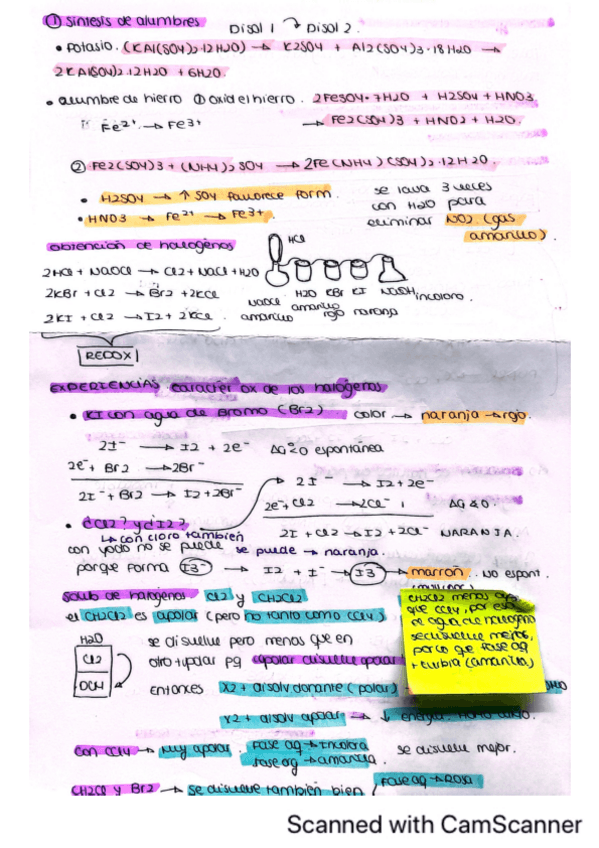 ① síntesis de alumbres   Disol 1 → Disol 2.
• Potasio. (KAl(SO4)2·12H2O) → K2SO4 + Al2(SO4)3·18H2O →
2KAl(SO4)2·12H2O + 6H2O.
• alumbre de hierro ① oxid el hierro. 2FeSO4·7H2O + H2SO4 + HNO3
Fe2+ → Fe3+   → Fe2(SO4)3 + HNO2 + H2O.
② Fe2(SO4)3 + (NH4)2SO4 → 2Fe(NH4)(SO4)2·12H2O.
• H2SO4 → ↑ SO4 favorece form.   se lava 3 veces
• HNO3 → Fe2+ → Fe3+.   con H2O para
eliminar NO2 (gas
amarillo).
obtención de halógenos   HCl
2HCl + NaOCl → Cl2 + NaCl + H2O
2KBr + Cl2 → Br2 + 2KCl   NaOCl H2O KBr KI NaOH, incoloro.
2KI + Cl2 → I2 + 2KCl.   amarillo amarillo rojo naranja
REDOX
EXPERIENCIAS carácter ox de los halógenos
• KI con agua de Bromo (Br2)   color → naranja → rojo.
2I- → I2 + 2e-   ΔG<0 espontánea
2e- + Br2 → 2Br-
2I- + Br2 → I2 + 2Br-   2I- → I2 + 2e-
2e- + Cl2 → 2Cl-   ΔG<0.
• ¿Cl2? y ¿I2?   2I + Cl2 → I2 + 2Cl- NARANJA.
↳ con cloro también
con yodo no se puede   se puede → naranja.
porque forma I3-   → I2 + I- → I3 → marrón. No espont.
solub de halógenos Cl2 y CH2Cl2
el CH2Cl2 es apolar (pero no tanto como CCl4)
CH2Cl2 menos
que CCl4, por eso
el agua de halógeno
se disuelve menos,
por lo que fase aq
+ turbia (amarilla)
H2O
Cl2
se disuelve pero menos que en
otro + polar pq apolar disuelve apolar
entonces X2 + disolv donante (polar)
X2 + disolv apolar → ↓ energía.
con CCl4 → Muy apolar. Fase aq → incolora   se disuelve mejor.
fase org → amarilla.
CH2Cl y Br2 → se disuelve también bien   Fase aq → Rosa
Scanned with CamScanner